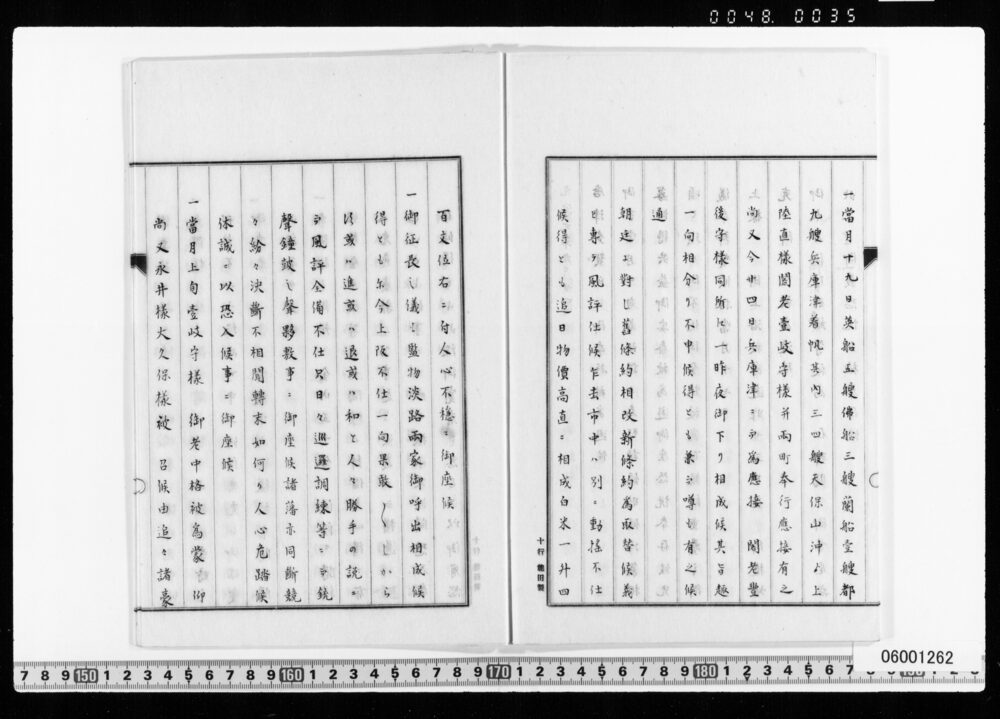 0048. 0035
一當月十九日英船五艘佛船三艘蘭船壹艘都
九艘兵庫津着帆其内三四艘天保山沖ゟ上
陸直様閣老壹岐守様并兩町奉行應接有之
尚又今廿四日兵庫津ニ而為應接 閣老豐
後守様同所江一昨夜御下り相成候其旨趣
一向相分り不申候得とも兼而噂も有之候
通
朝廷ゟ對し舊條約相改新條約為取替候義
と専ら風評仕候乍去市中ハ別ニ動揺不仕
候得とも追日物價高直ニ相成白米一升四
十行 熊田製
百文位右ニ付人心不穏ニ御座候
一御征長之儀も監物淡路兩家御呼出相成候
得とも于今上阪不仕一向果敢〱しから
須或ハ進或ハ退或ハ和と人々勝手の説ニ
而風評全備不仕只日々巡邏調練等ニ而銃
聲鐘皷之聲夥敷事ニ御座候諸藩亦同斷競
々紛々决斷不相聞轉末如何り人心危踏候
体誠ニ以恐入候事ニ御座候
一當月上旬壹岐守様 御老中格被為蒙 仰
尚又永井様大久保様被 召候由追々諸豪
7 8 9 150 1 2 3 4 5 6 7 8 9 160 1 2 3 4 5 6 7 8 9 170 1 2 3 4 5 6 7 8 9 180 1 2 3 4 5 6 7
06001262